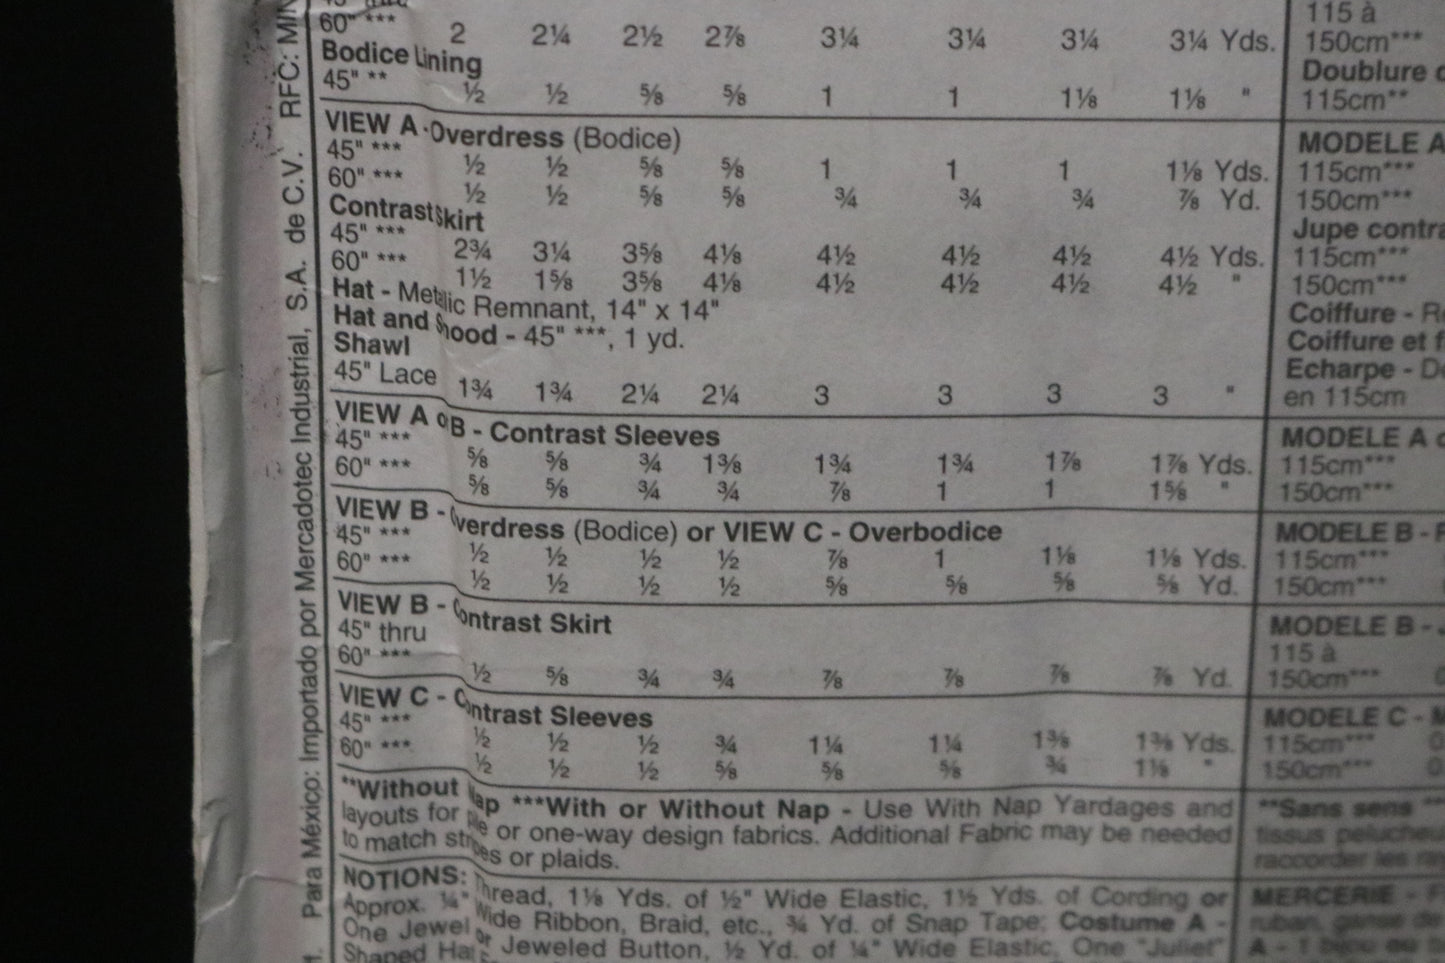 45" thru
60" *** 2 2¼ 2½ 2⅞ 3¼ 3¼ 3¼ 3¼ Yds.
Bodice Lining
45" ** ½ ½ ⅝ ⅝ 1 1 1⅛ 1⅛ "
VIEW A - Overdress (Bodice)
45" *** ½ ½ ⅝ ⅝ 1 1 1 1⅛ Yds.
60" *** ½ ½ ⅝ ⅝ ¾ ¾ ¾ ⅞ Yd.
Contrast Skirt
45" *** 2¾ 3¼ 3⅝ 4⅛ 4½ 4½ 4½ 4½ Yds.
60" *** 1½ 1⅝ 3⅝ 4⅛ 4½ 4½ 4½ 4½ "
Hat - Metallic Remnant, 14" x 14"
Hat and Snood - 45" ***, 1 yd.
Shawl
45" Lace 1¾ 1¾ 2¼ 2¼ 3 3 3 3 "
VIEW A or B - Contrast Sleeves
45" *** ⅝ ⅝ ¾ 1⅜ 1¾ 1¾ 1⅞ 1⅞ Yds.
60" *** ⅝ ⅝ ¾ ¾ ⅞ 1 1 1⅝ "
VIEW B - Overdress (Bodice) or VIEW C - Overbodice
45" *** ½ ½ ½ ½ ⅞ 1 1⅛ 1⅛ Yds.
60" *** ½ ½ ½ ½ ⅝ ⅝ ⅝ ⅝ Yd.
VIEW B - Contrast Skirt
45" thru
60" *** ½ ⅝ ¾ ¾ ⅞ ⅞ ⅞ ⅞ Yd.
VIEW C - Contrast Sleeves
45" *** ½ ½ ½ ¾ 1¼ 1¼ 1⅜ 1⅜ Yds.
60" *** ½ ½ ½ ⅝ ⅝ ⅝ ¾ 1⅛ "
**Without Nap ***With or Without Nap - Use With Nap Yardages and
layouts for pile or one-way design fabrics. Additional Fabric may be needed
to match stripes or plaids.
NOTIONS: Thread, 1⅛ Yds. of ½" Wide Elastic, 1½ Yds. of Cording or
Approx. ¼" Wide Ribbon, Braid, etc., ¾ Yd. of Snap Tape; Costume A -
One Jewel or Jeweled Button, ½ Yd. of ¼" Wide Elastic, One "Juliet"
Shaped Hat
115 à
150cm***
Doublure
115cm**
MODELE A
115cm***
150cm***
Jupe
115cm***
150cm***
Coiffure -
Coiffure et
Echarpe -
en 115cm
MODELE A
115cm***
150cm***
MODELE B -
115cm***
150cm***
MODELE B -
115 à
150cm***
MODELE C -
115cm***
150cm***
**Sans sens
tissus
raccorder les
MERCERIE -
ruban,
A - 1 bijou ou
Para México: Importado por Mercadotec Industrial, S.A. de C.V. RFC: